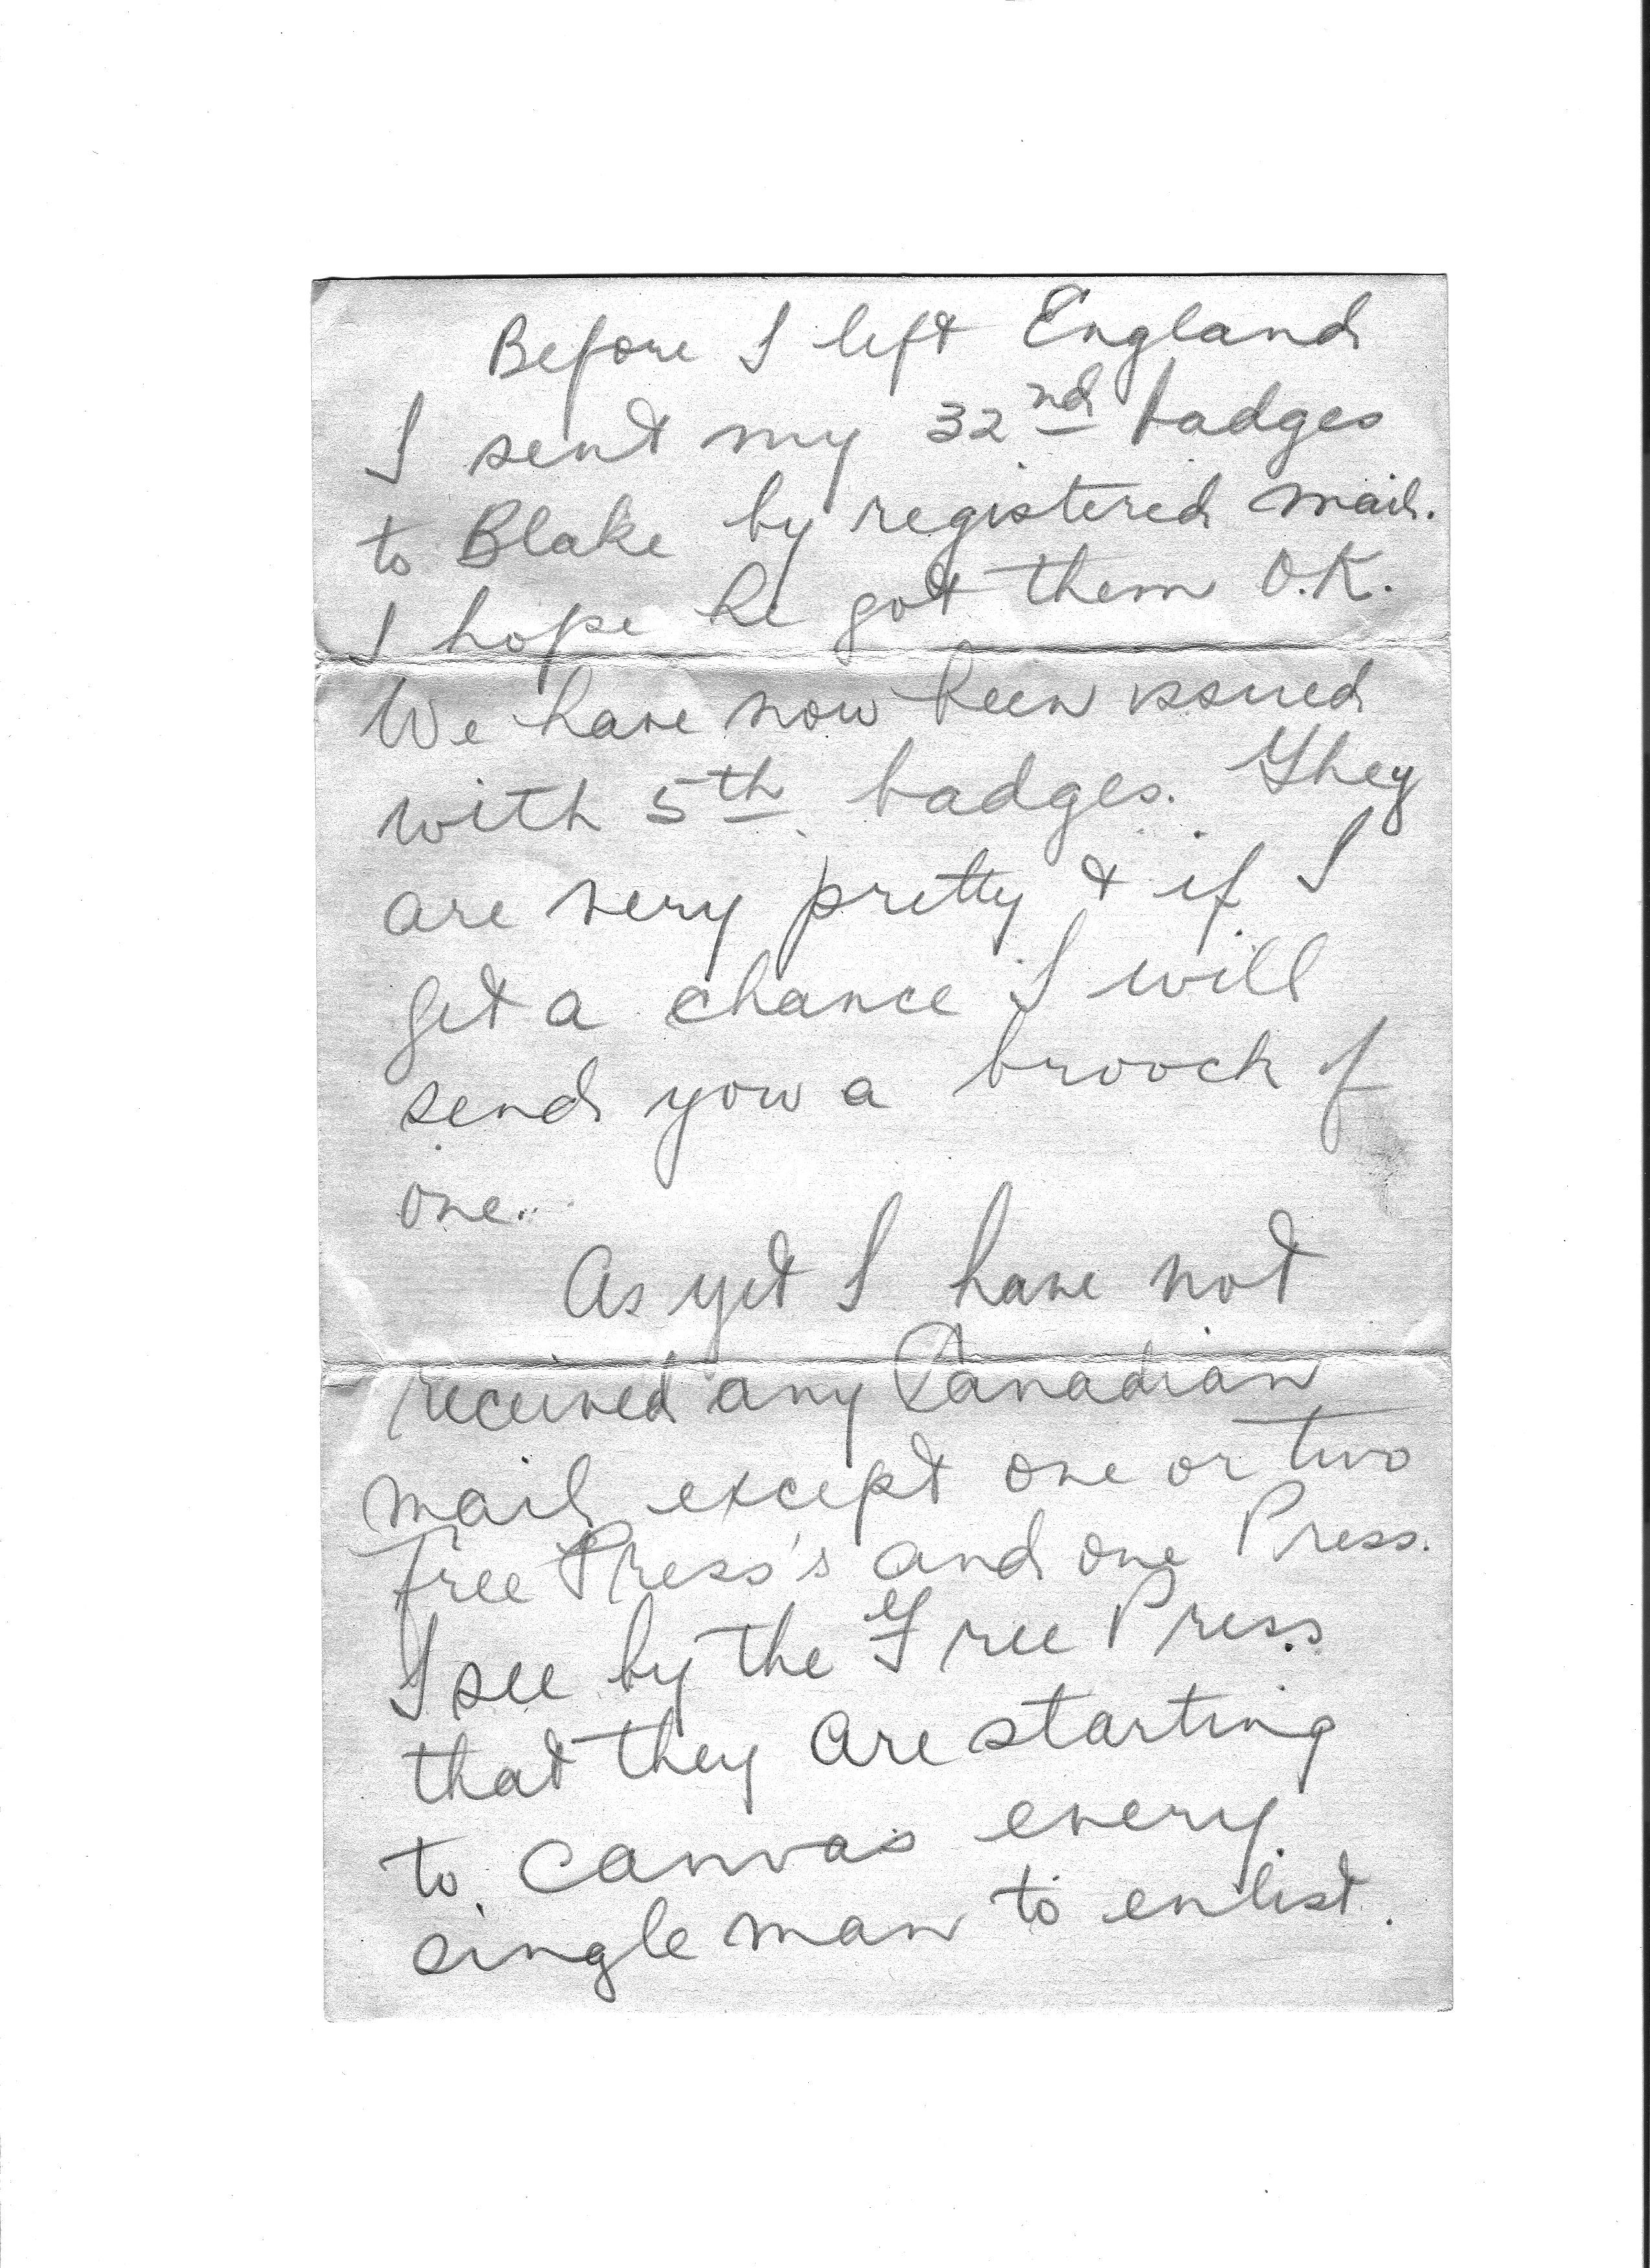 Before I left England
I sent my 32nd badges
to Blake by registered mail.
I hope he got them O.K.
We have now been issued
with 5th badges. They
are very pretty & if I
get a chance I will
send you a brooch of
one.
As yet I have not
received any Canadian
mail except one or two
Free Press's and one Press.
I see by the Free Press
that they are starting
to canvas every
single man to enlist.